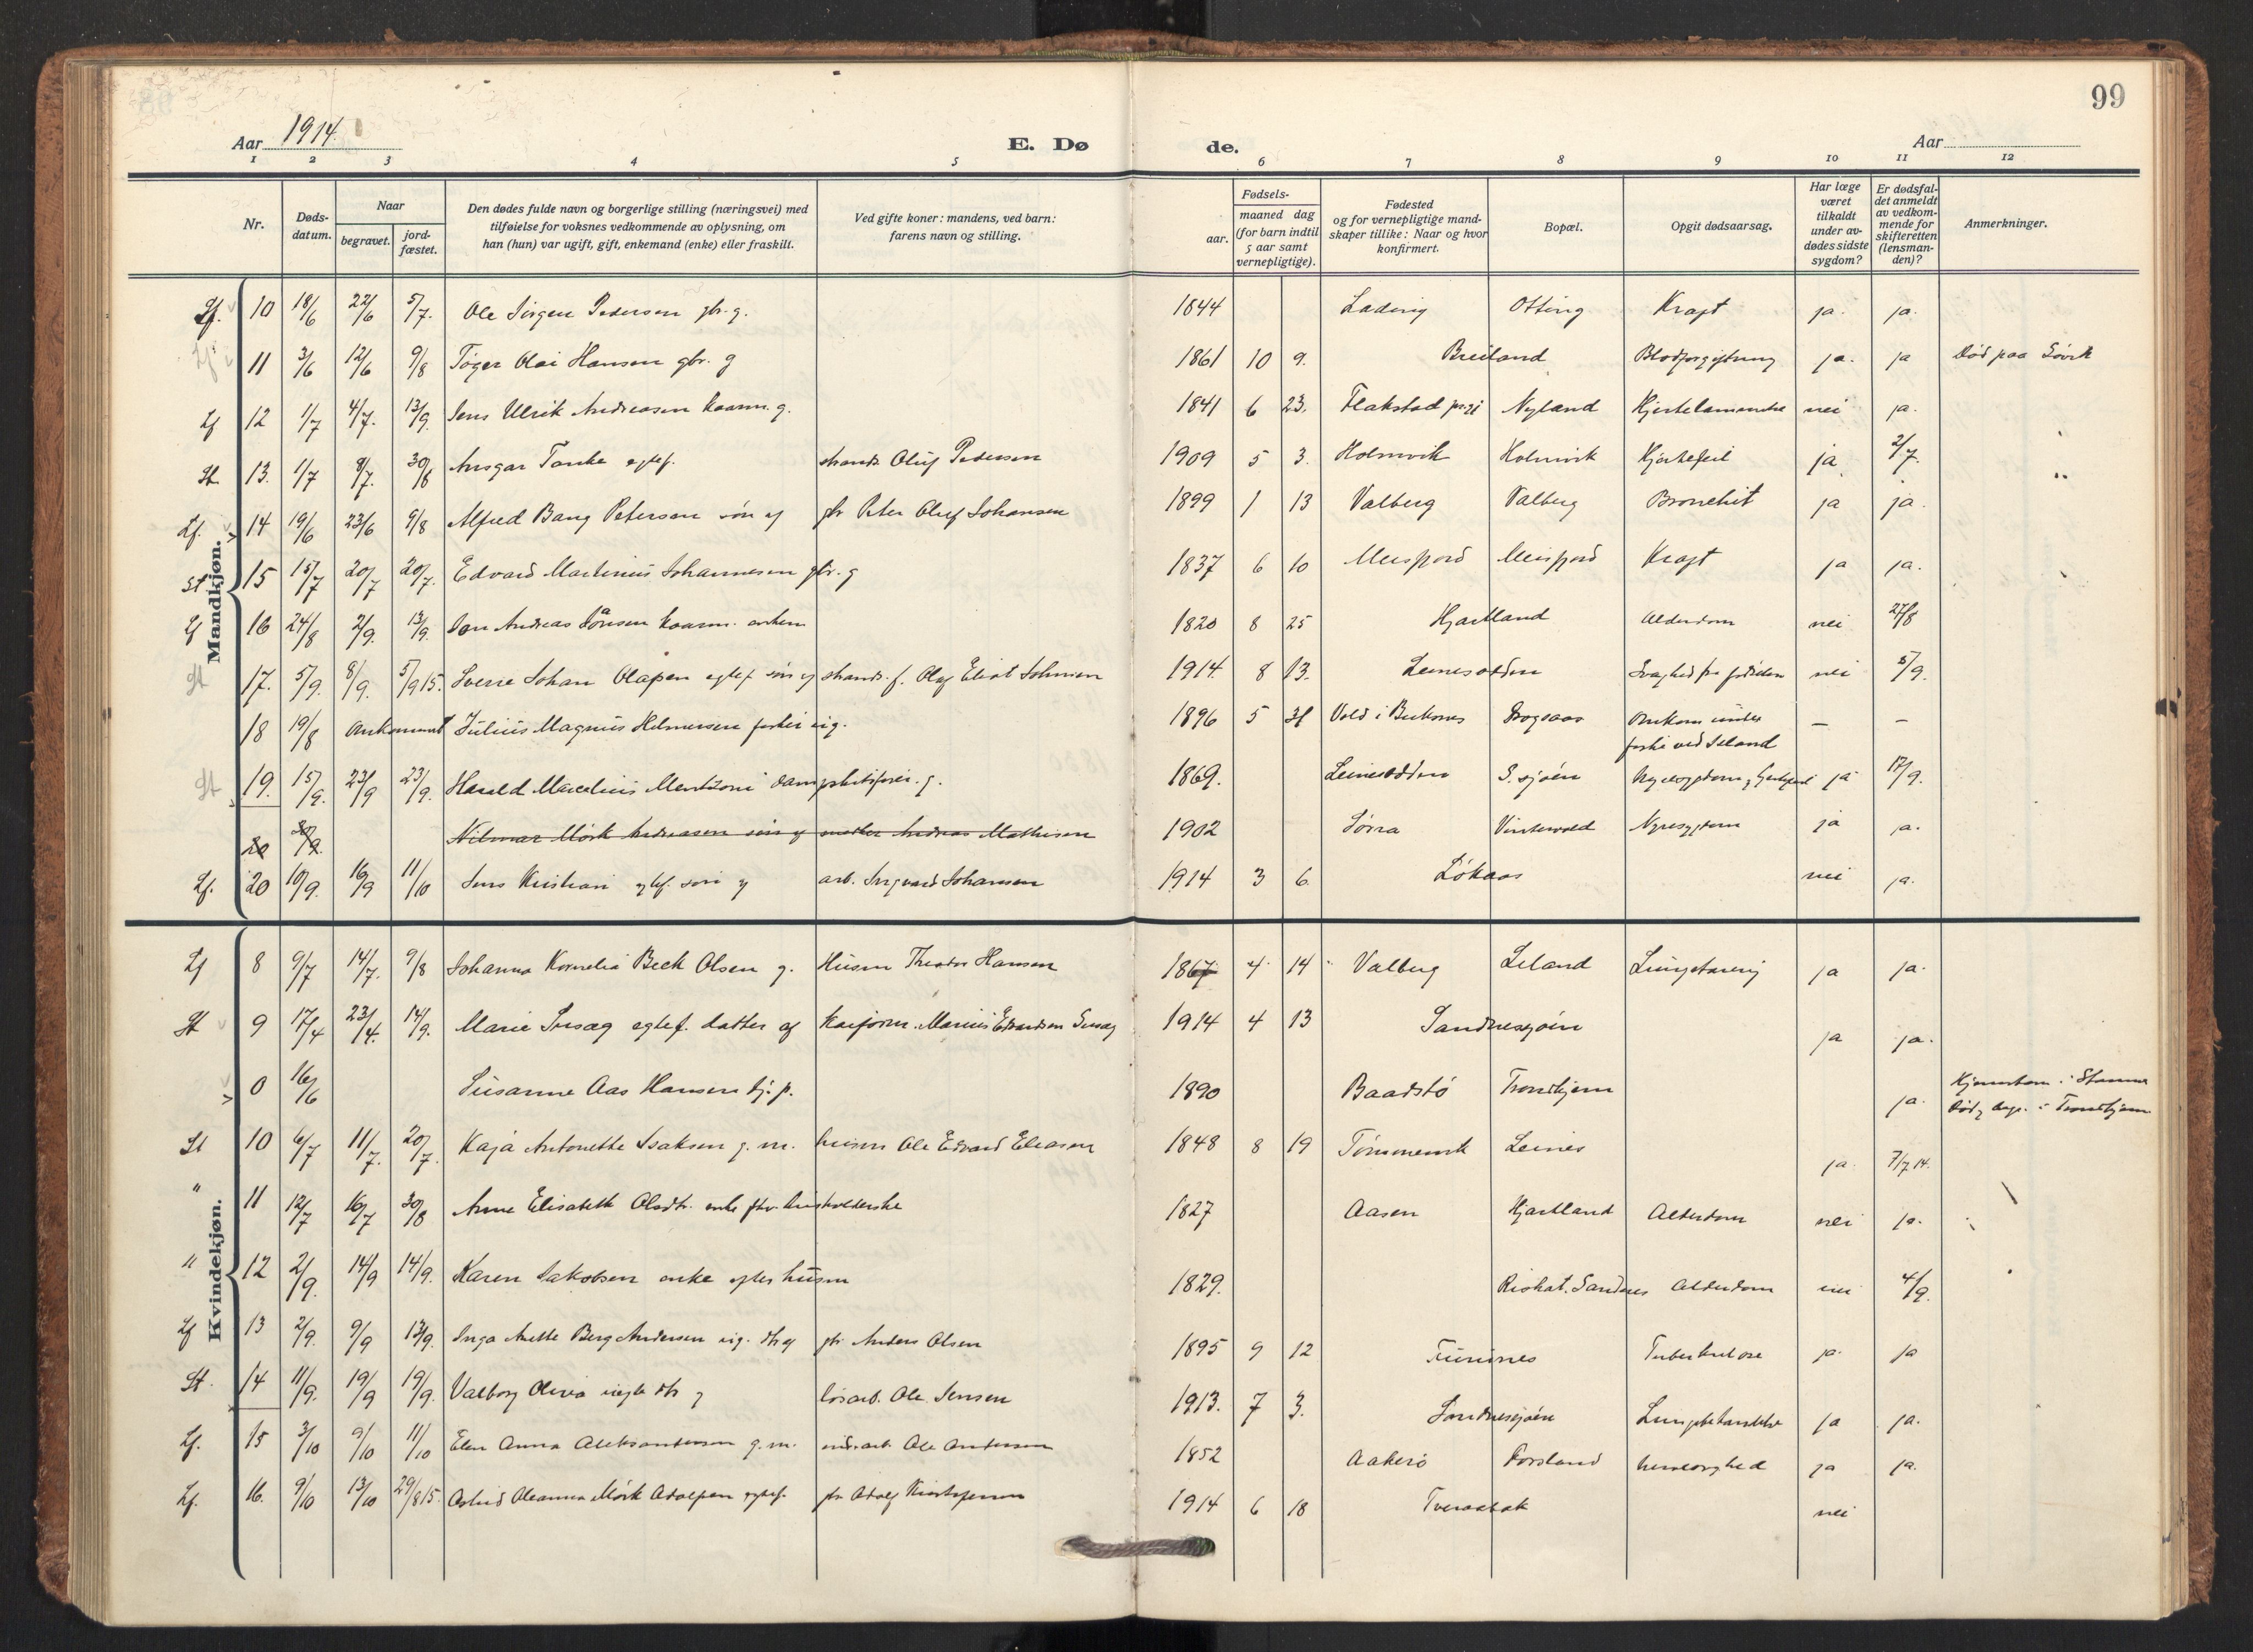 99
Aar 1914. E. Dø de. Aar
1 2 3 4 5 6 7 8 9 10 11 12
Nr.
Døds-datum.
Naar
begravet.
jord-fæstet.
Den dødes fulde navn og borgerlige stilling (næringsvei) med
tilføielse for voksnes vedkommende av oplysning, om
han (hun) var ugift, gift, enkemand (enke) eller fraskilt.
Ved gifte koner: mandens, ved barn:
farens navn og stilling.
Fødsels-
aar.
maaned dag
(for barn indtil
5 aar samt
vernepligtige).
Fødested
og for vernepligtige mand-
skaper tillike: Naar og hvor
konfirmert.
Bopæl.
Opgit dødsaarsag.
Har læge
været
tilkaldt
under av-
dødes sidste
sygdom?
Er dødsfal-
det anmeldt
av vedkom-
mende for
skifteretten
(lensman-
den)?
Anmerkninger.
Mandkjøn.
Lf. 10 18/6 22/6 5/7. Ole Jørgen Pedersen gbr. g. 1844 Lading Otting Kræft ja. ja.
Lf 11 3/6 12/6 9/8 Tøger Olai Hansen gbr. g 1861 10 9. Breiland Blodforgiftning ja. ja Død paa Søvik
Lf 12 1/7 4/7. 13/9. Jens Ulrik Andreasen kaarm. g. 1841 6 23. Flakstad Nyland nei ja.
St. 13. 1/7 8/7. 30/8 Ansgar Tanke egtef. strands. Oluf Pedersen 1909 5 3. Holmvik Holmvik Hjertefeil ja 2/7.
Lf. 14 19/6 23/6 9/8 Alfred Bang Petersen søn af gbr Peter Oluf Johansen 1899 1 13 Valberg Valberg Bronchit ja ja.
St 15 15/7 20/7 20/7. Edvard Martinus Johannesen gbr. g 1837 6 10 Meisfjord Meisfjord Kræft ja ja.
Lf 16 24/8 2/9. 13/9. Jon Andreas Jønsen kaarm. enkem 1820 8 25 Hjartland Alderdom nei 27/8
St 17. 5/9. 8/9. 5/9 15. Sverre Johan Olafsen egtef søn af strands. f. Olaf Eliot Johnsen 1914. 8 13. Leinesodden Svaghed fra fødselen nei 5/9.
18 19/8 Omkommet Julius Magnus Hilmersen fisker ug. 1896 5 31 Vold i Omkom under – –
fiske ved Seland
St 19. 15/9. 23/9 23/9. Harald Marcelius Mentzoni dampskibsfører. g. 1869. Leinesodden S. sjøen ja 17/9.
20 Hilmar Mørk Andreasen søn af Andreas Mathisen 1902 Sørra Nyresygdom ja ja.
Lf. 20 10/9. 16/9 11/10 Jens Kristian egtef. søn af arb. Ingvard Johansen 1914 3 6. Løkaas nei ja.
Kvindekjøn.
Lf 8 9/7 14/7. 9/8 Johanna Kornelia Beck Olsen g. Husm Theodor Hansen 1867 4 14 Valberg Leland Lungetæring ja ja.
St 9 17/4 23/4. 14/9. Marie Insæg egtef. datter af Marius Edvardsen Insæg 1914 4 13 Sandnessjøen ja ja.
0 16/6 Susanne Aas Hansen tj. p. 1890 Baadstø Trondhjem ja. Hjemstavn i Stamnes
Død og begr. i Trondhjem
St 10 6/7 11/7. 20/7. Kaja Antonette Isaksen g. m. husm Ole Edvard Eliasen 1848 8 19 Leines ja. 7/7 14.
" 11 12/7 16/7 30/8 Anne Elisabeth Olsdtr. enke fhv. husholderske 1827 Aasen Hjartland Alderdom nei ja.
" 12 2/9. 14/9 14/9. Karen Jakobsen enke efter husm 1829. Sandnes Alderdom nei 4/9.
Lf 13 2/9. 9/9 13/9. Inga Anette Berg Andersen ug. dtr af gbr Anders Olsen 1895 9 12 Tuberkulose ja. ja
St. 14 11/9. 19/9 19/9. Valborg Olivia uegte dtr af løsarb. Ole Jensen 1913. 7 3. Sandnessjøen Lungebetændelse ja ja.
Lf. 15 3/10 9/10 11/10 Elen Anna Aleksandersen g. m. Ole Andersen 1852 Aakerø Forsland ja ja.
Lf. 16. 9/10 13/10 29/8 15. Astrid Oleanna Mørk Adolfsen egtef. gbr Adolf Kristoffersen 1914 6 18 Tveraabak nei